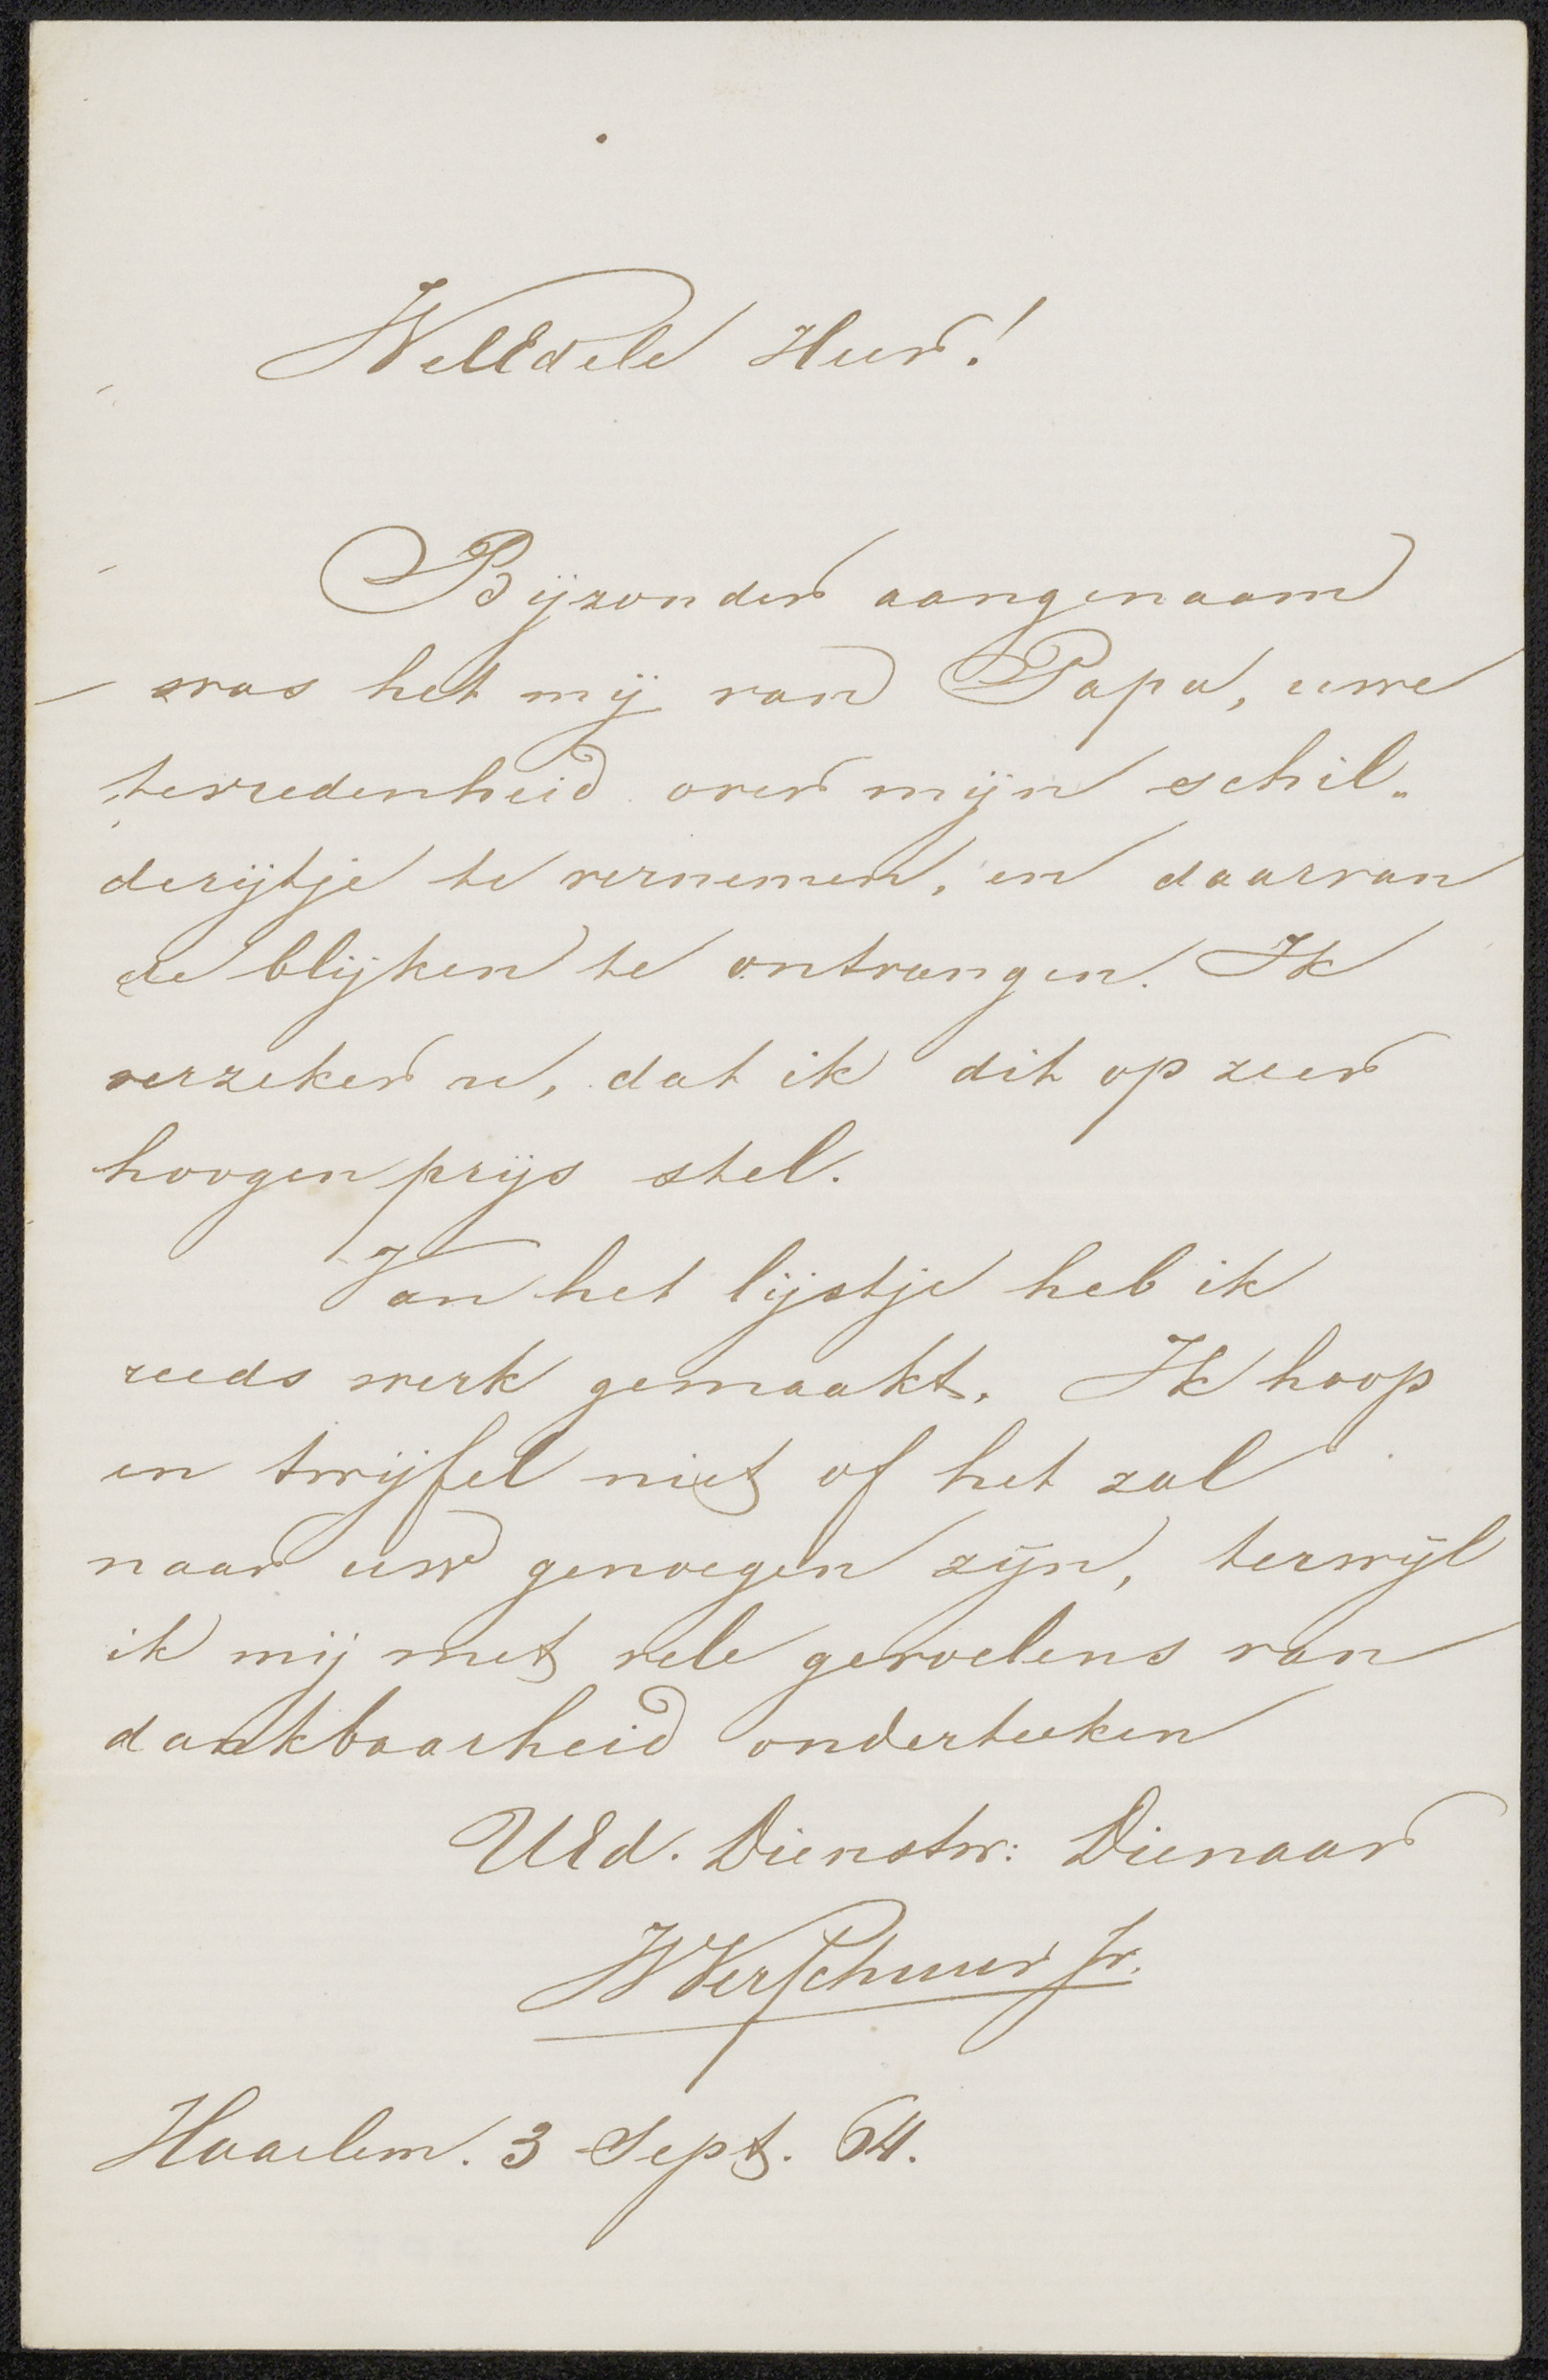 WelEdele Heer!
Bijzonder aangenaam
was het mij van Papa, uwe
tevredenheid over mijn schil„
derijtje te vernemen, en daarvan
de blijken te ontvangen. Ik
verzeker u, dat ik dit op zeer
hoogen prijs stel.
Van het lijstje heb ik
reeds werk gemaakt. Ik hoop
en twijfel niet of het zal
naar uw genoegen zijn, terwijl
ik mij met vele gevoelens van
dankbaarheid onderteeken
UEd. Dienstw: Dienaar
WVerschuur Jr.
Haarlem. 3 Sept. 64.